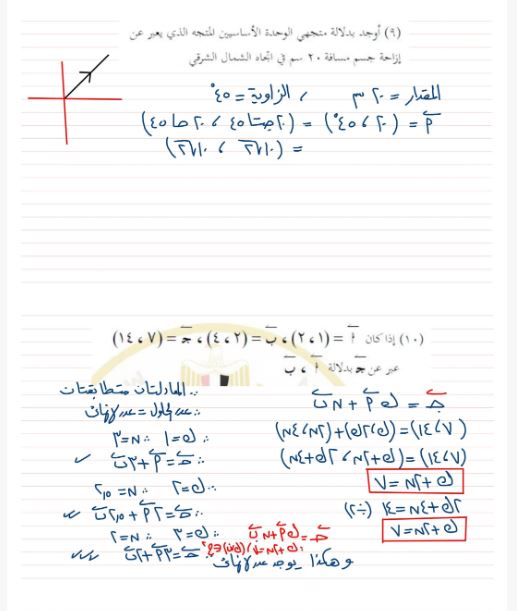 (٩) أوجد بدلالة متجهي الوحدة الأساسيين المتجه الذي يعبر عن
إزاحة جسم مسافة ٢٠ سم في اتجاه الشمال الشرقي
المقدار = ٢٠ سم ، الزاوية = ٤٥°
أ = (٢٠ ، ٤٥°) = (٢٠ جتا ٤٥ ، ٢٠ جا ٤٥)
= (١٠√٢ ، ١٠√٢)
(١٠) إذا كان أ = (١ ، ٢) ، ب = (٢ ، ٤) ، ج = (٧ ، ١٤)
عبر عن ج بدلالة أ ، ب
ج = ك أ + ن ب
(٧ ، ١٤) = (ك ، ٢ك) + (٢ن ، ٤ن)
(٧ ، ١٤) = (ك + ٢ن ، ٢ك + ٤ن)
ك + ٢ن = ٧
٢ك + ٤ن = ١٤ (÷٢)
ك + ٢ن = ٧
∴ المعادلتان متطابقتان
∴ عدد الحلول = عدد لانهائي
∴ ك = ١ ∴ ن = ٣
∴ ج = أ + ٣ب ✓
∴ ك = ٢ ∴ ن = ٢٫٥
∴ ج = ٢أ + ٢٫٥ب ✓✓
∴ ك = ٣ ∴ ن = ٢
∴ ج = ٣أ + ٢ب ✓✓✓
وهكذا يوجد عدد لانهائي
ج = ك أ + ن ب
ك + ٢ن = ٧